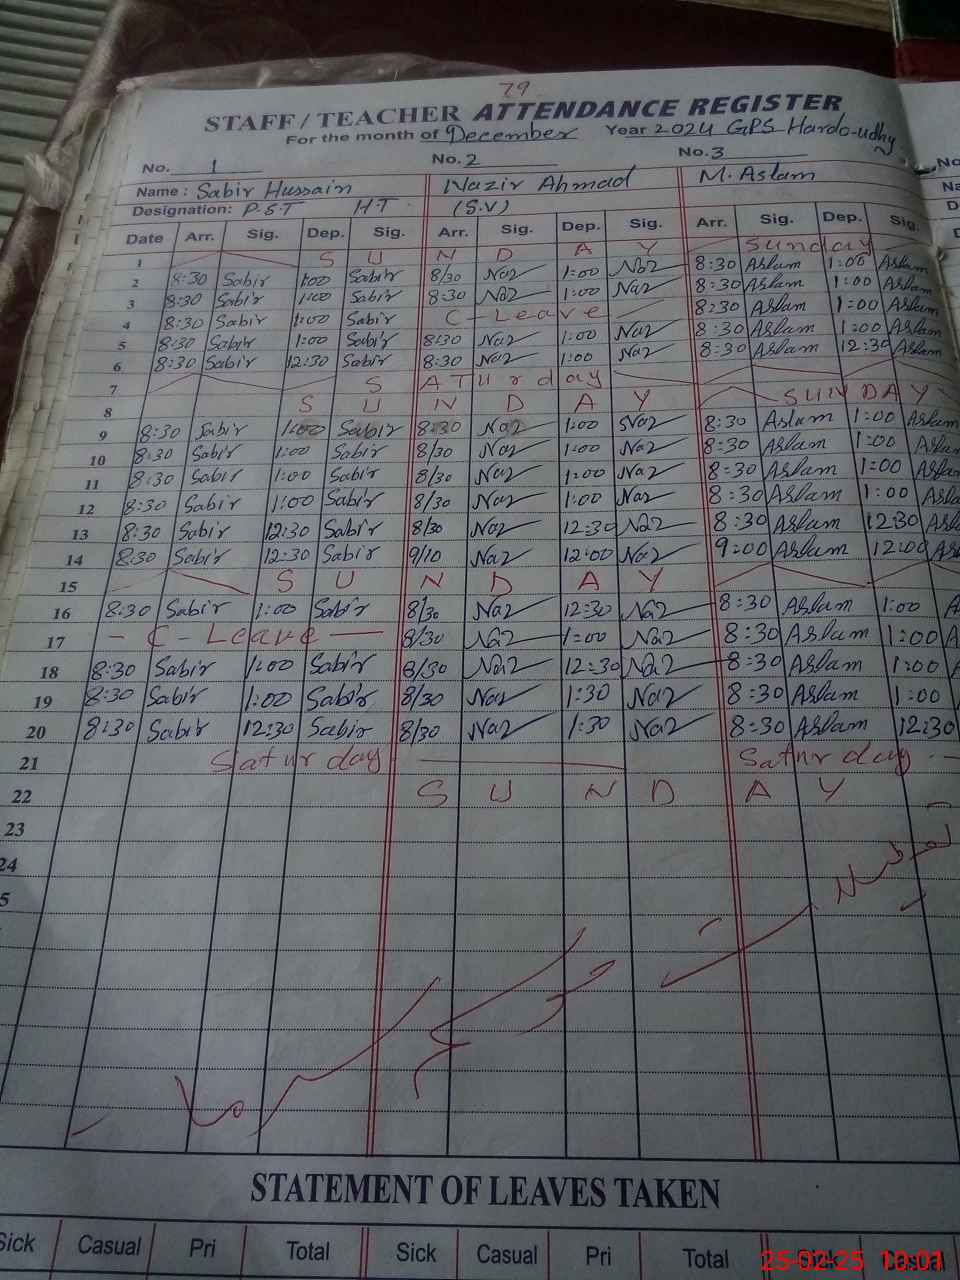 79
STAFF/TEACHER ATTENDANCE REGISTER
For the month of December Year 2024 GPS Hardo-udhy
No. 1 No. 2 No. 3 No
Name: Sabir Hussain Nazir Ahmad M. Aslam Na
Designation: P.S.T H T. (S.V) D
Date Arr. Sig. Dep. Sig. Arr. Sig. Dep. Sig. Arr. Sig. Dep. Sig.
1 S U N D A Y Sunday
2 8:30 Sabir 1:00 Sabir 8/30 Naz 1:00 Naz 8:30 Aslam 1:00 Aslam
3 8:30 Sabir 1:00 Sabir 8:30 Naz 1:00 Naz 8:30 Aslam 1:00 Aslam
4 8:30 Sabir 1:00 Sabir C-Leave 8:30 Aslam 1:00 Aslam
5 8:30 Sabir 1:00 Sabir 8/30 Naz 1:00 Naz 8:30 Aslam 1:00 Aslam
6 8:30 Sabir 12:30 Sabir 8:30 Naz 1:00 Naz 8:30 Aslam 12:30 Aslam
7 SATUrday
8 S U N D A Y SUNDAY
9 8:30 Sabir 1:00 Sabir 8:30 Naz 1:00 Naz 8:30 Aslam 1:00 Aslam
10 8:30 Sabir 1:00 Sabir 8/30 Naz 1:00 Naz 8:30 Aslam 1:00 Aslam
11 8:30 Sabir 1:00 Sabir 8/30 Naz 1:00 Naz 8:30 Aslam 1:00 Asla
12 8:30 Sabir 1:00 Sabir 8/30 Naz 1:00 Naz 8:30 Aslam 1:00 Asla
13 8:30 Sabir 12:30 Sabir 8/30 Naz 12:30 Naz 8:30 Aslam 12:30 Asl
14 8:30 Sabir 12:30 Sabir 9/10 Naz 12:00 Naz 9:00 Aslam 12:00 As
15 S U N D A Y
16 8:30 Sabir 1:00 Sabir 8/30 Naz 12:30 Naz 8:30 Aslam 1:00 A
17 - C-Leave - 8/30 Naz 1:00 Naz 8:30 Aslam 1:00 A
18 8:30 Sabir 1:00 Sabir 8/30 Naz 12:30 Naz 8:30 Aslam 1:00 A
19 8:30 Sabir 1:00 Sabir 8/30 Naz 1:30 Naz 8:30 Aslam 1:00
20 8:30 Sabir 12:30 Sabir 8/30 Naz 1:30 Naz 8:30 Aslam 12:30
21 Saturday Saturday
22 S U N D A Y
23
24
5
STATEMENT OF LEAVES TAKEN
Sick Casual Pri Total Sick Casual Pri Total Sick Casual
25-02-25 10:01